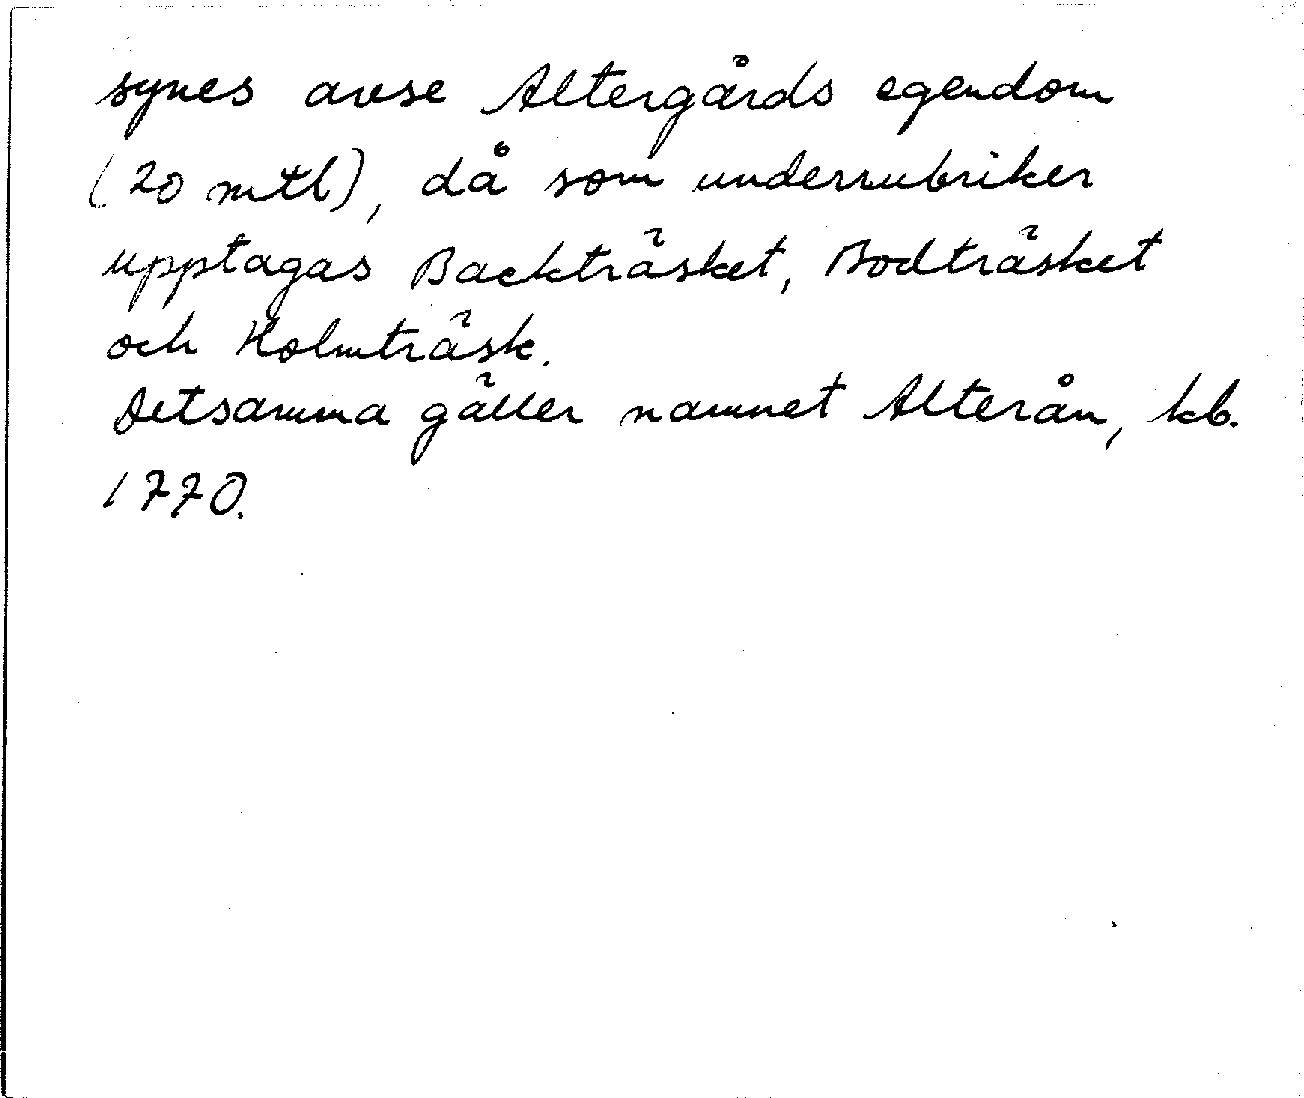 synes avse Altergårds egendom
(20 mtl), då som underrubriker
upptagas Backträsket, Bodträsket
och Holmträsk.
Detsamma gäller namnet Alterån, kb.
1770.